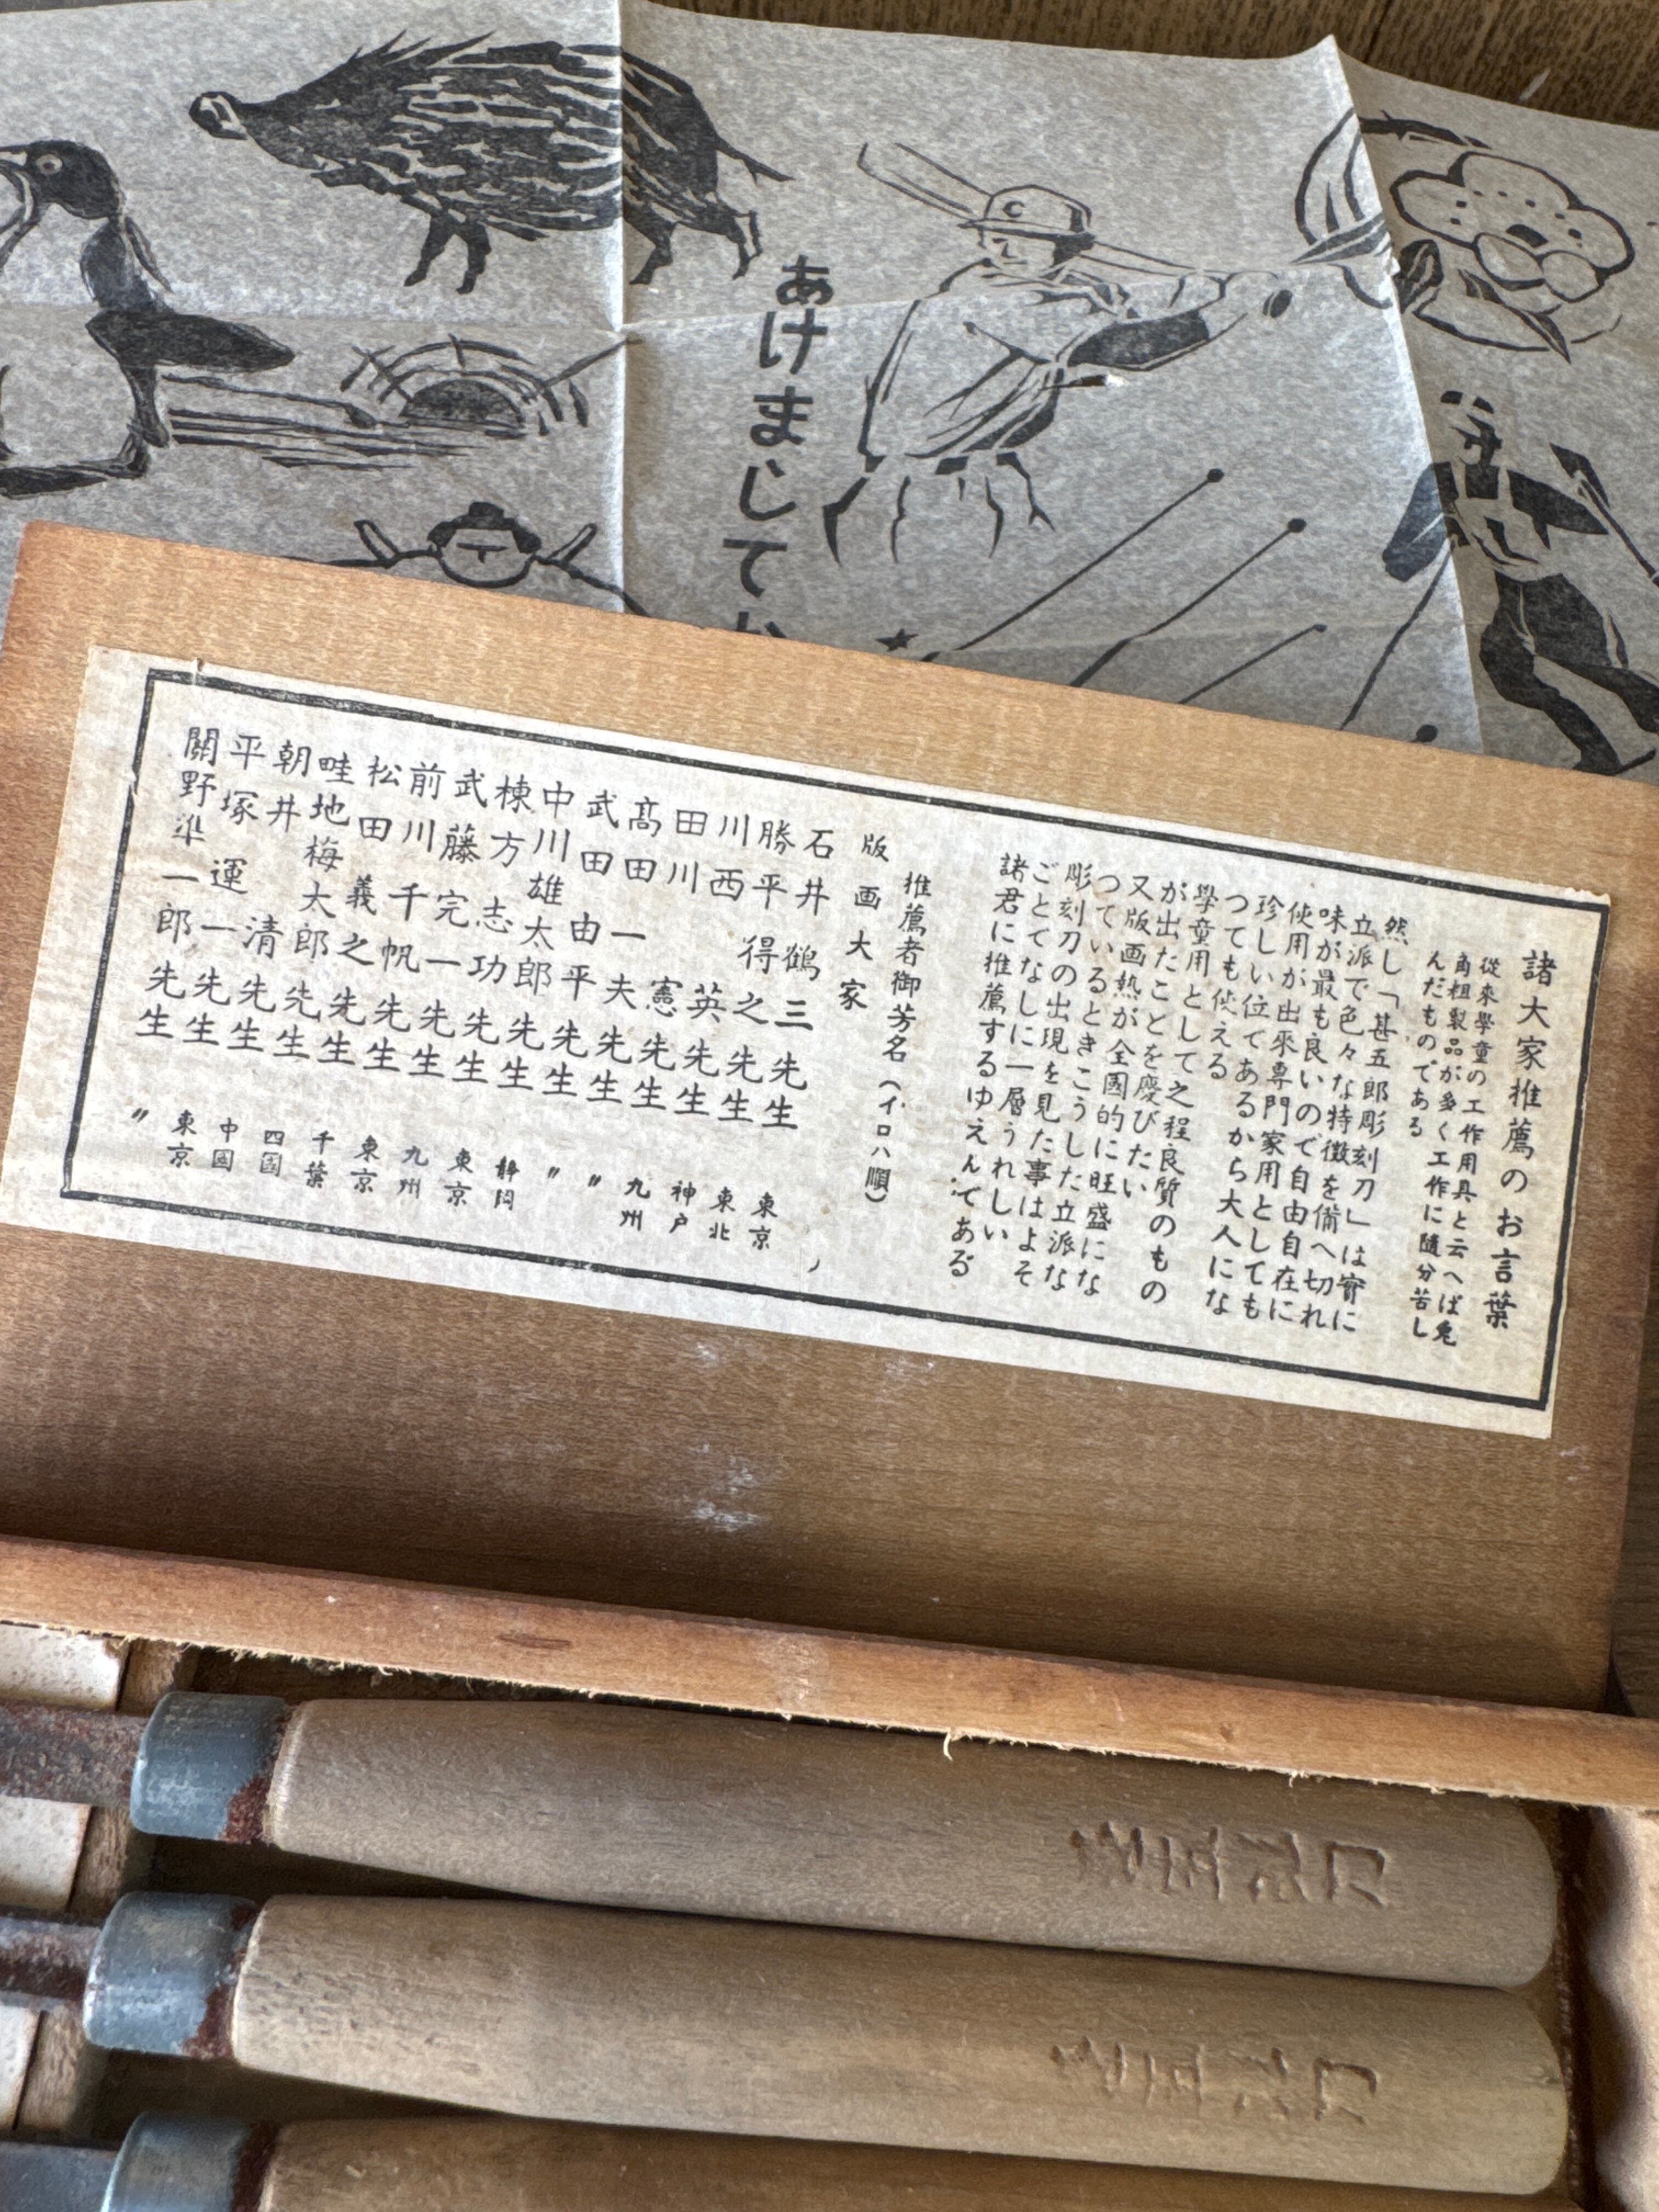 あけまして
C
諸大家推薦のお言葉
従來學童の工作用具と云へば兎
角粗製品が多く工作に隨分苦し
んだものである
然し「甚五郎彫刻刀」は實に
立派で色々な特徴を備へ切れ
味が最も良いので自由自在に
使用が出來専門家用としても
珍しい位であるから大人にな
つても使える
學童用として之程良質のもの
が出たことを慶びたい
又版画熱が全國的に旺盛にな
つているときこうした立派な
彫刻刀の出現を見た事はよそ
ごとでなしに一層うれしい
諸君に推薦するゆえんである
推薦者御芳名(イロハ順)
版画大家
石井鶴三先生 東京
勝平得之先生 東北
川西英先生 神戸
田川憲先生 九州
髙田一夫先生 〃
武田由平先生 〃
中川雄太郎先生 静岡
棟方志功先生 東京
武藤完一先生 九州
前川千帆先生 東京
松田義之先生 千葉
畦地梅太郎先生 四國
朝井清先生 中國
平塚運一先生 東京
關野準一郎先生 〃